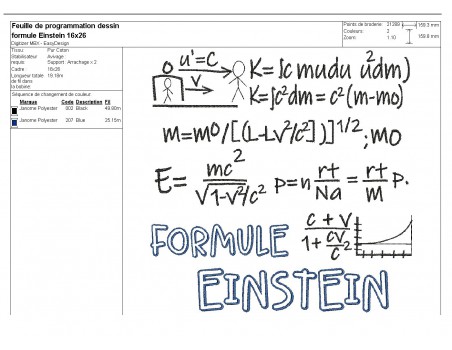 Feuille de programmation dessin
formule Einstein 16x26
Digitizer MBX - EasyDesign
Points de broderie: 31399
Couleurs: 2
Zoom: 1:10
159.3 mm
159.8 mm
Tissu: Pur Coton
Stabilisateur requis: Avvage Support : Arrachage x 2
Cadre 16x26
Longueur totale de fil dans la bobine: 19.19m
Séquence de changement de couleur
Marque Code Description Fil
Janome Polyester 002 Black 49.80m
Janome Polyester 207 Blue 25.15m
u'=C
v
K=∫c mudu u²dm)
K=∫c²dm=c²(m-mo)
m=mo/[(L-Lv²/c²])]^1/2;mo
E= mc²/√1-v²/c² p=n rt/Na = rt/m p.
c+v/1+cv/c²
FORMULE
EINSTEIN